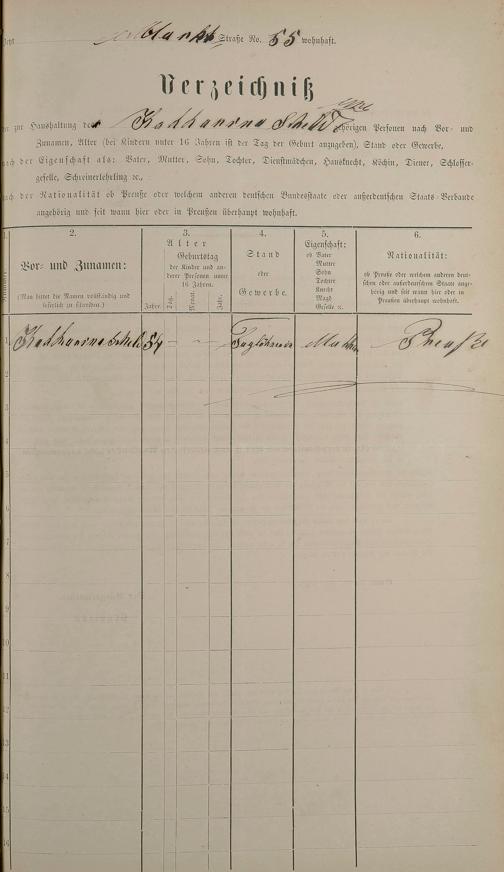 Jetzt Markt Straße No. 55 wohnhaft.
Verzeichniß
der zur Haushaltung der Kadharina Scheld gehörigen Personen nach Vor- und
Zunamen, Alter (bei Kindern unter 16 Jahren ist der Tag der Geburt anzugeben), Stand oder Gewerbe,
nach der Eigenschaft als: Vater, Mutter, Sohn, Tochter, Dienstmädchen, Hausknecht, Köchin, Diener, Schlosser-
geselle, Schreinerlehrling ꝛc.,
nach der Nationalität ob Preuße oder welchem anderen deutschen Bundesstaate oder außerdeutschen Staats-Verbande
angehörig und seit wann hier oder in Preußen überhaupt wohnhaft.
1.
Nummer.
2.
Vor- und Zunamen:
(Man bittet die Namen vollständig und
leserlich zu schreiben.)
3.
Alter
Geburtstag
der Kinder und an-
derer Personen unter
16 Jahren.
Jahre. Tag. Monat. Jahr.
4.
Stand
oder
Gewerbe.
5.
Eigenschaft:
ob Vater
Mutter
Sohn
Tochter
Knecht
Magd
Geselle ꝛc.
6.
Nationalität:
ob Preuße oder welchem anderen deut-
schen oder außerdeutschen Staate ange-
hörig und seit wann hier oder in
Preußen überhaupt wohnhaft.
1 Kadharina Scheld 54 – – Taglöhnerin Mutter Preuße
2
3
4
5
6
7
8
9
10
11
12
13
14
15
16